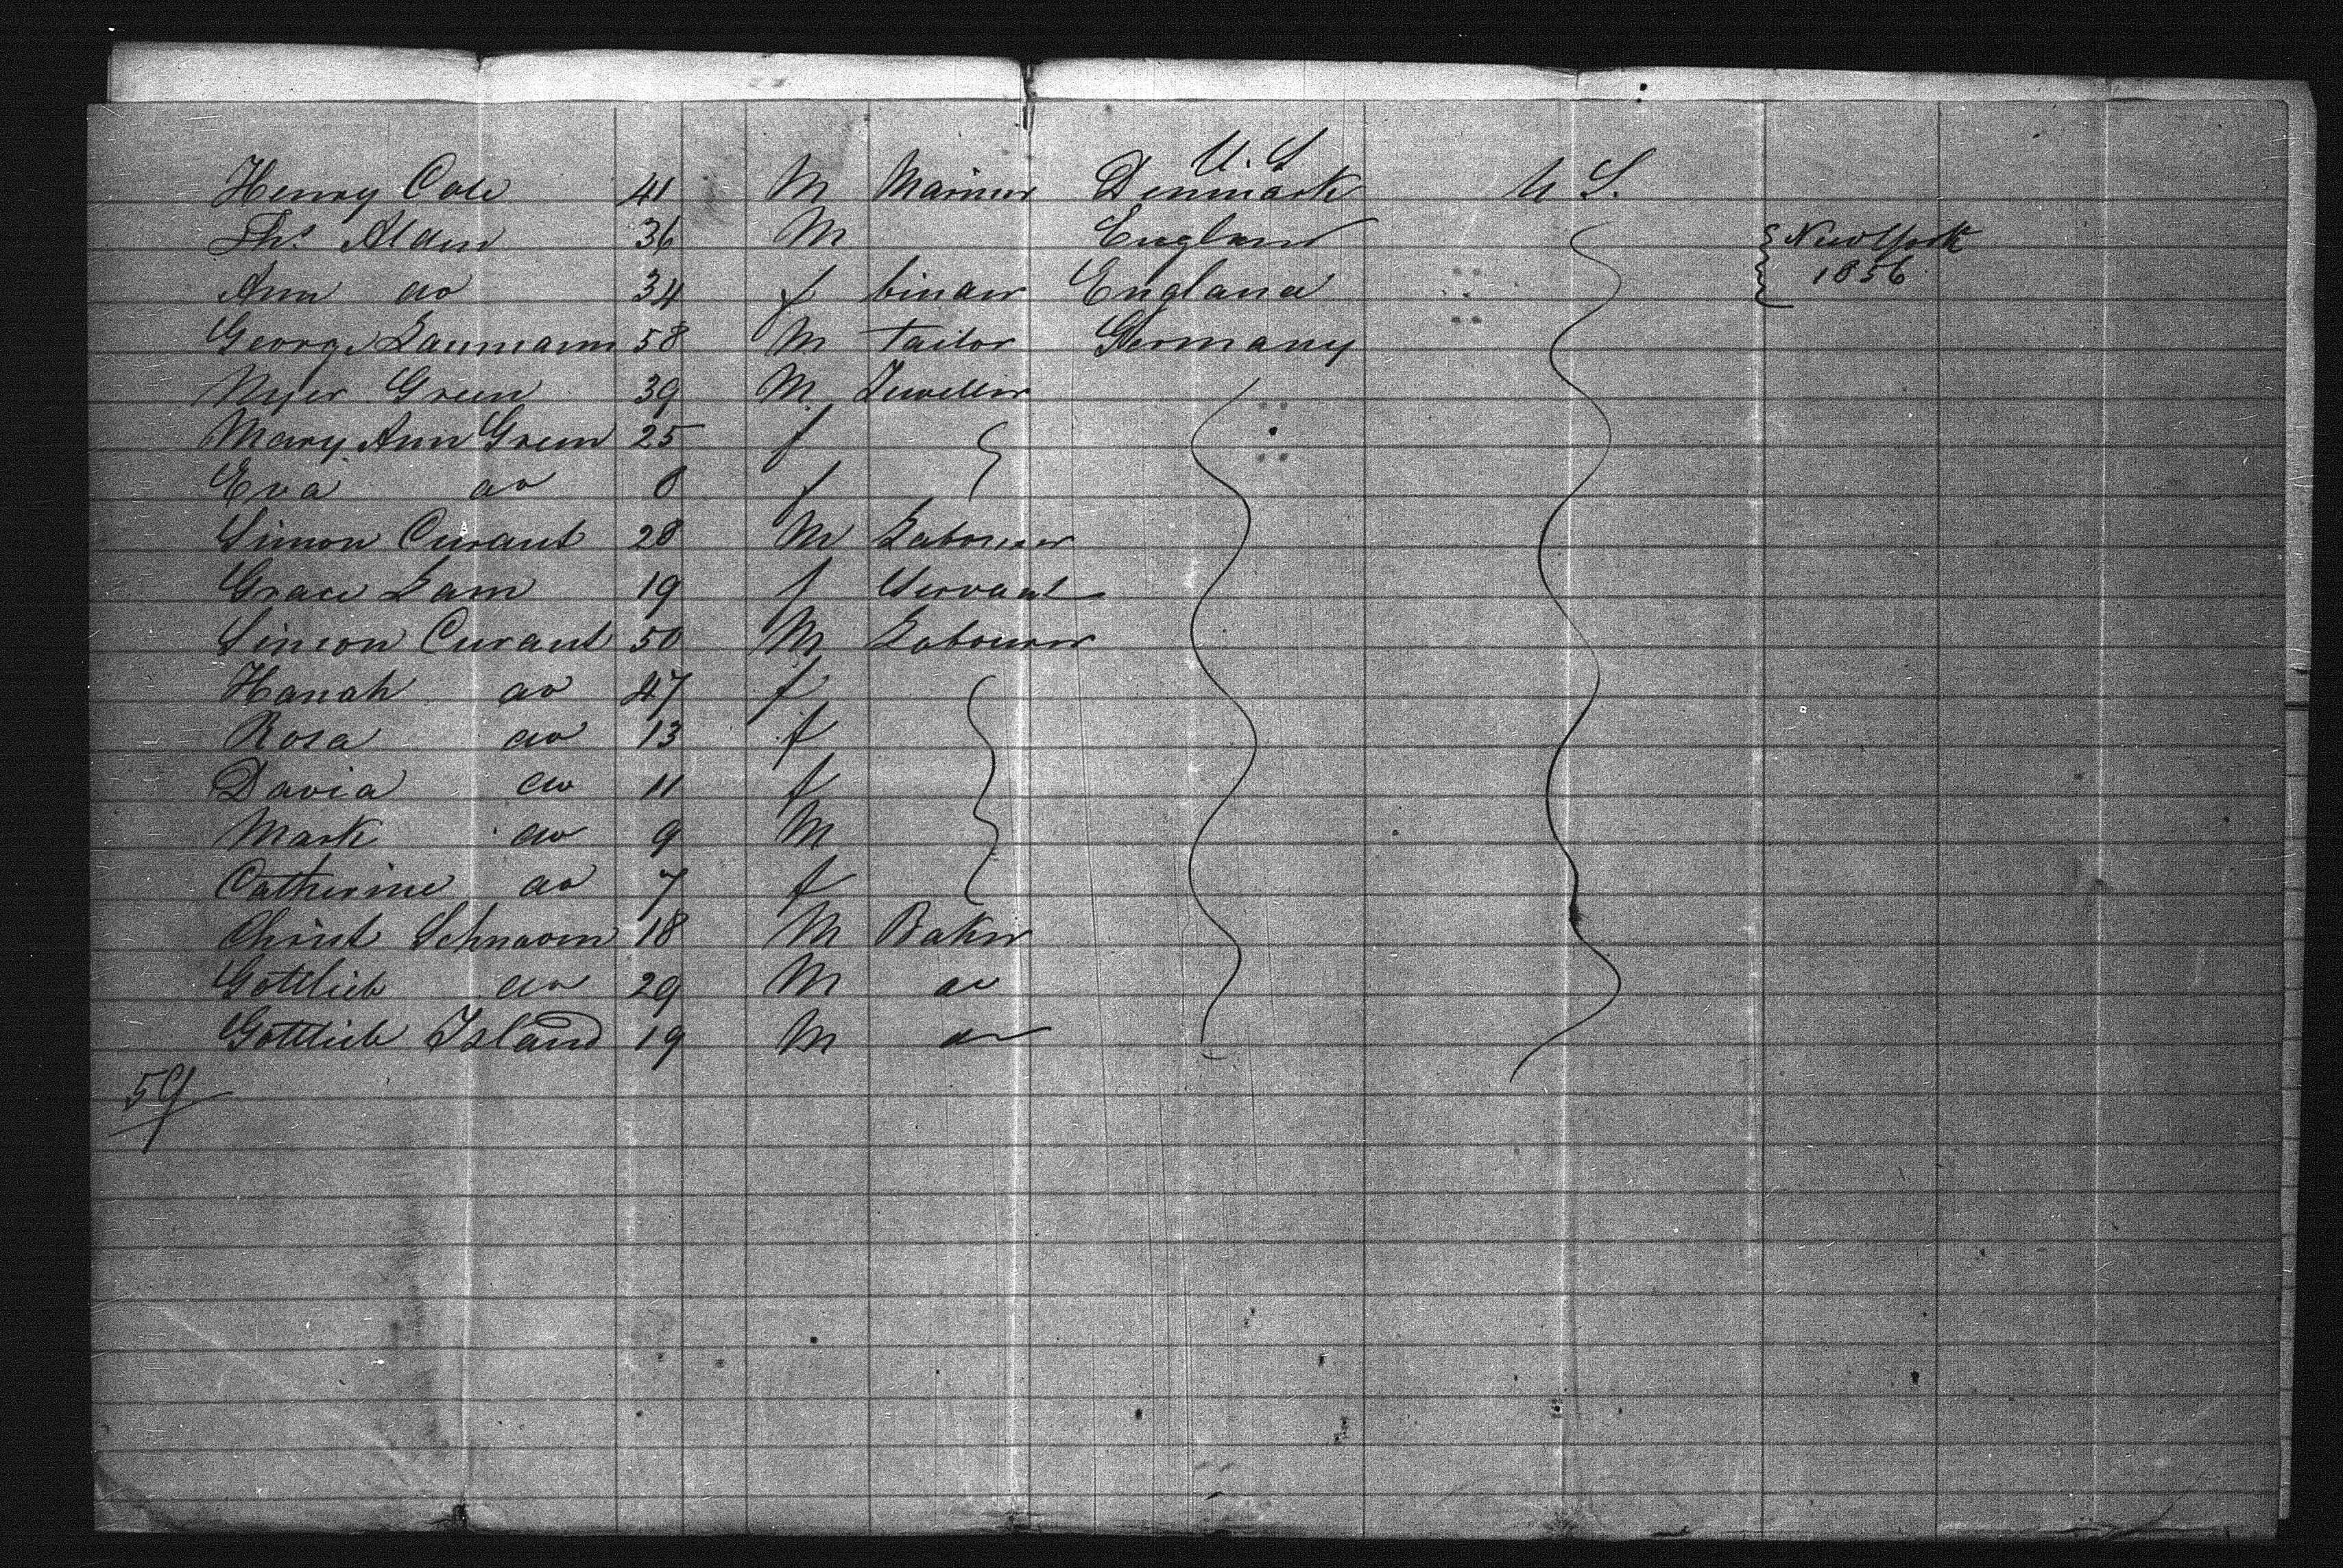 U. S
Henry Cole 41 M Mariner Denmark U S.
Ths Alden 36 M England { New York
Ann do 34 f England 1856
George Laumann 58 M tailor Germany
Myer Green 39 M Jeweller
Mary Ann Green 25 f
Eva do 8 f
Simon Curant 28 M Labourer
Grace Lam 19 f Servant
Simon Curant 50 M Labourer
Hanah do 47 f
Rosa do 13 f
David do 11 f
Mark do 9 M
Catherine do 7 f
Christ 18 M Baker
Gottlieb do 29 M do
Gottlieb Island 19 M do
59